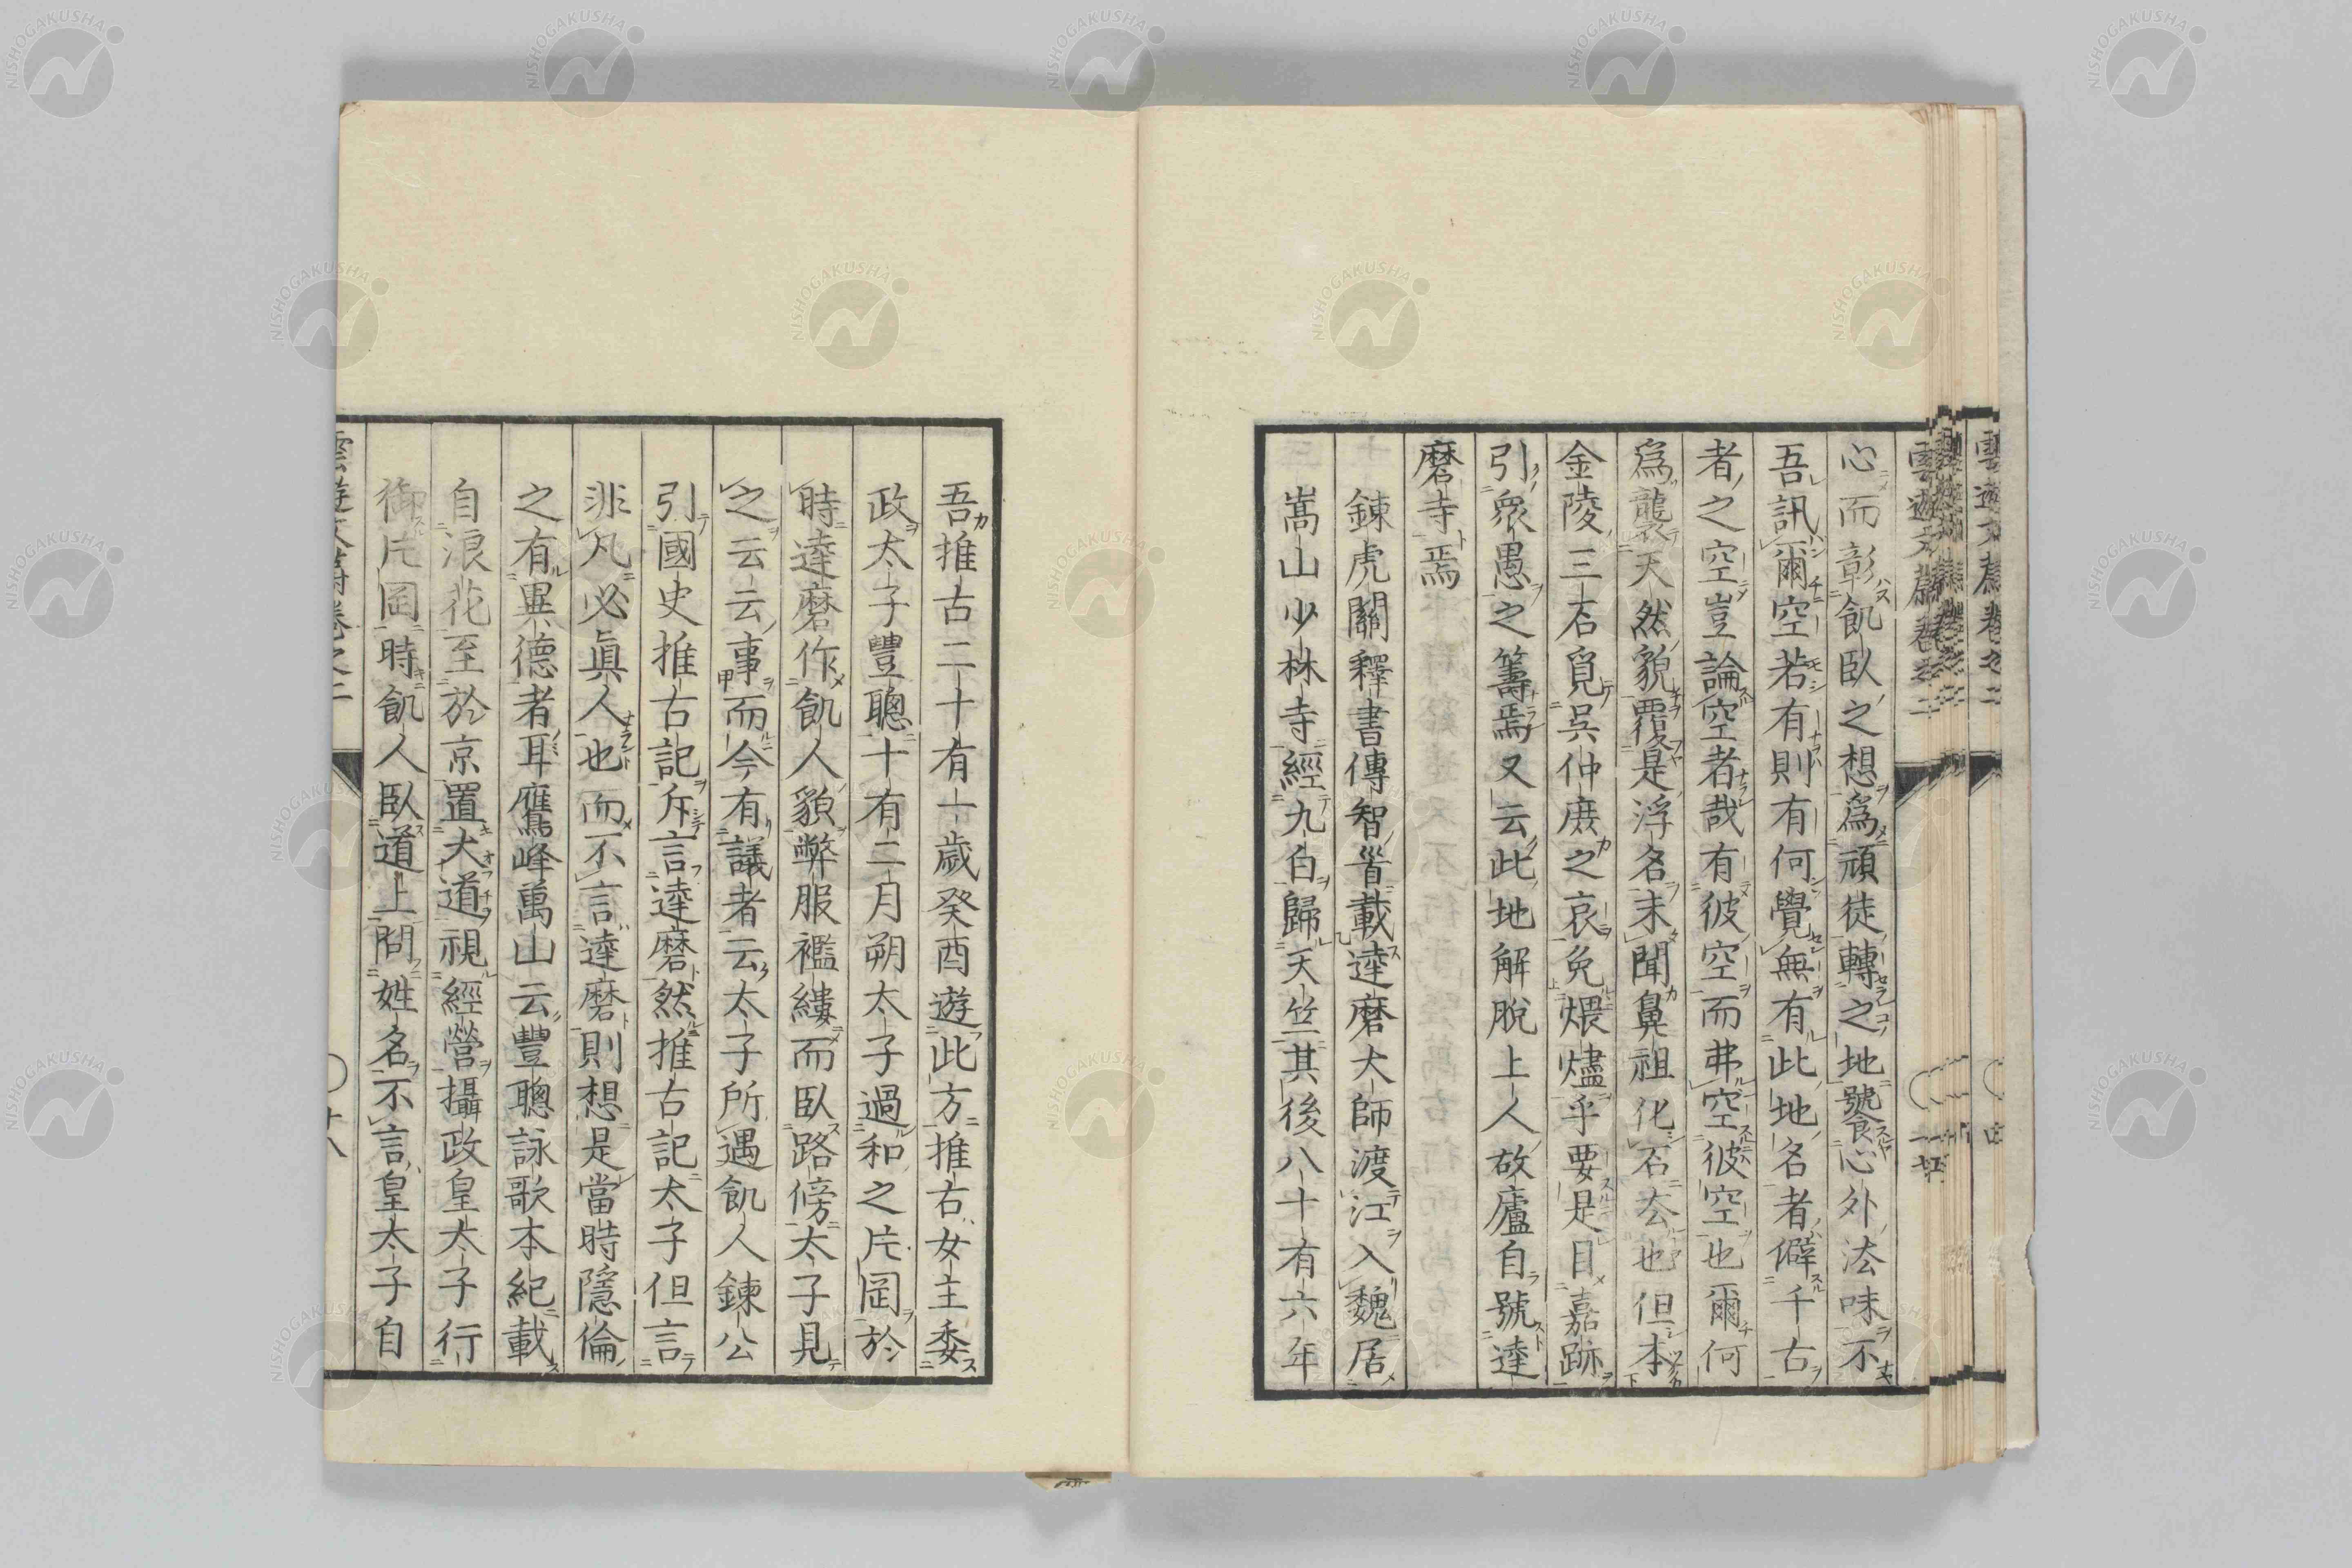 心而彰飢臥之想爲頑徒轉之地饗心外法味不
吾訊爾空若有則有何覺無有此地名者僻千古
者之空豈論空者哉有彼空而弗空彼空也爾何
爲襲天然貌覆是浮名未聞鼻祖化石去也但本
金陵三石覓呉仲庶之哀免煨燼乎要是目嘉跡
引衆愚之籌焉又云此地解脫上人故廬自號達
磨寺焉
錬虎關釋書傳智首載達磨大師渡江入魏居
嵩山少林寺經九白歸天竺其後八十有六年
吾推古二十有一歲癸酉遊此方推古女主委
政太子豐聰十有二月朔太子過和之片岡於
時達磨作飢人貌弊服襤縷而臥路傍太子見
之云云事而今有議者云太子所遇飢人錬公
引國史推古記斥言達磨然推古記太子但言
非凡必眞人也而不言達磨則想是當時隱倫
之有異德者耳鷹峰萬山云豐聰詠歌本紀載
自浪花至於京置大道視經營攝政皇太子行
御片岡時飢人臥道上問姓名不言皇太子自
雲遊文蔚卷之二 十八
NISHOGAKUSHA